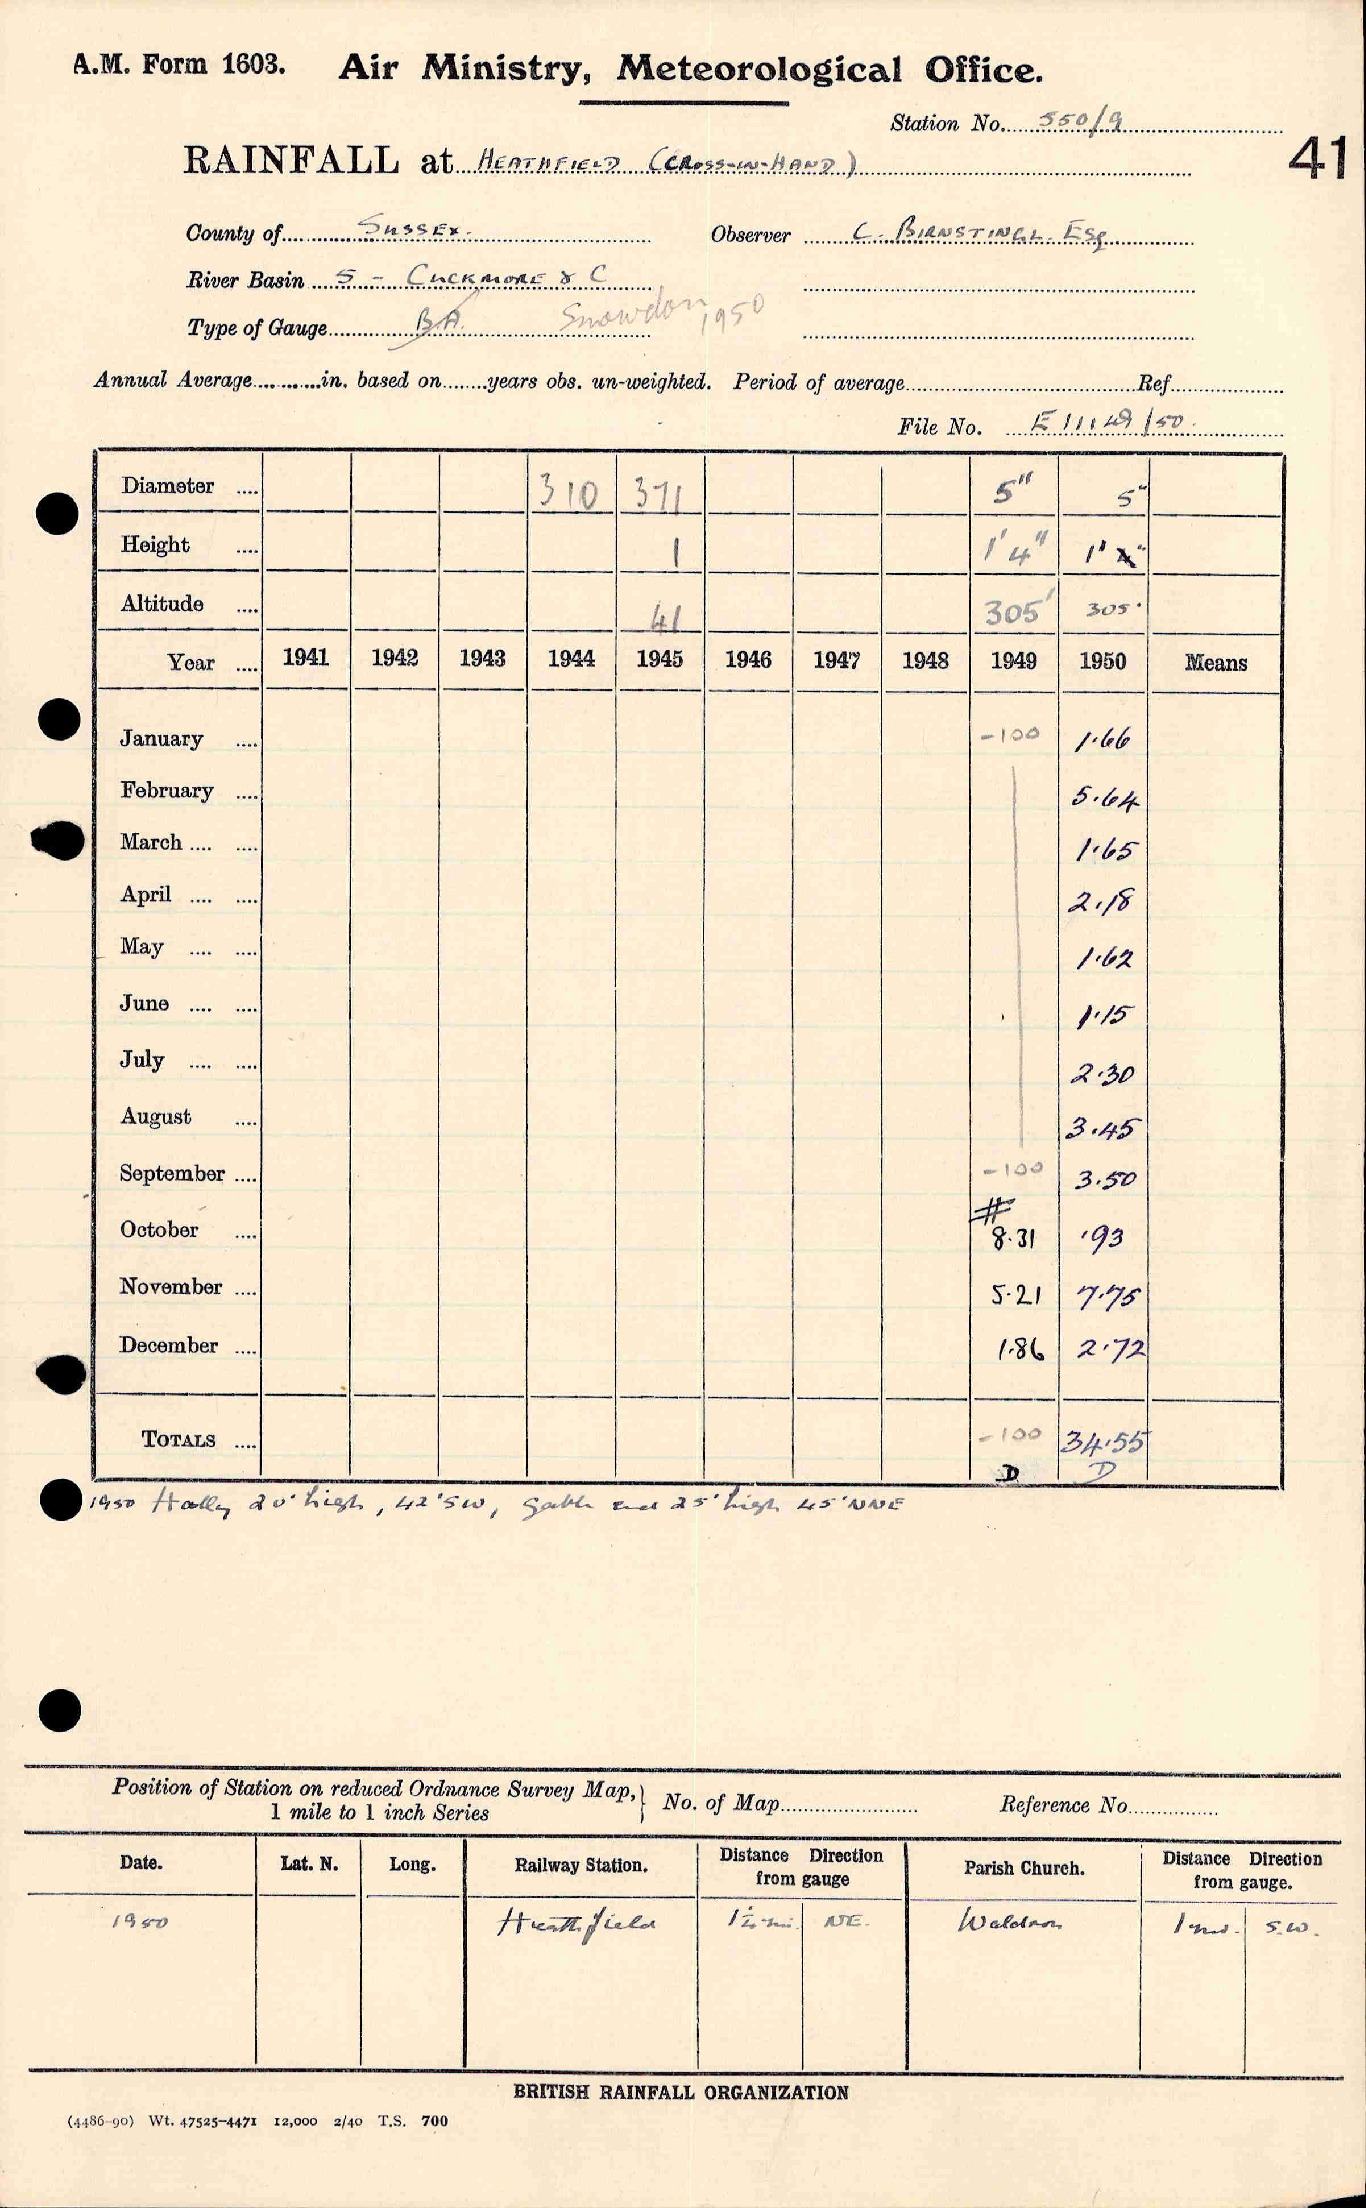 A.M. Form 1603. Air Ministry, Meteorological Office.
Station No. 550/9
RAINFALL at HEATHFIELD (CROSS-IN-HAND)
41
County of SUSSEX. Observer C. BIRNSTINGL. ESq
River Basin 5 - CUCKMORE & C
Type of Gauge B.A. Snowdon 1950
Annual Average in. based on years obs. un-weighted. Period of average Ref
File No. E 11149/50.
Diameter .... 310 371 5" 5"
Height .... 1 1'4" 1' "
Altitude .... 41 305' 305'
Year .... 1941 1942 1943 1944 1945 1946 1947 1948 1949 1950 Means
January .... -100 1.66
February .... 5.64
March .... .... 1.65
April .... .... 2.18
May .... .... 1.62
June .... .... 1.15
July .... .... 2.30
August .... 3.45
September .... -100 3.50
#
October .... 8.31 .93
November .... 5.21 7.75
December .... 1.86 2.72
TOTALS .... -100 34.55
D D
1950 Holly 20' high, 42' SW, gable end 25' high 45' NNE
Position of Station on reduced Ordnance Survey Map, 1 mile to 1 inch Series } No. of Map Reference No.
Date. Lat. N. Long. Railway Station. Distance Direction from gauge Parish Church. Distance Direction from gauge.
1950 Heathfield 1½ mi. NE. Waldron 1 mi. S.W.
BRITISH RAINFALL ORGANIZATION
(4486-90) Wt. 47525-4471 12,000 2/40 T.S. 700